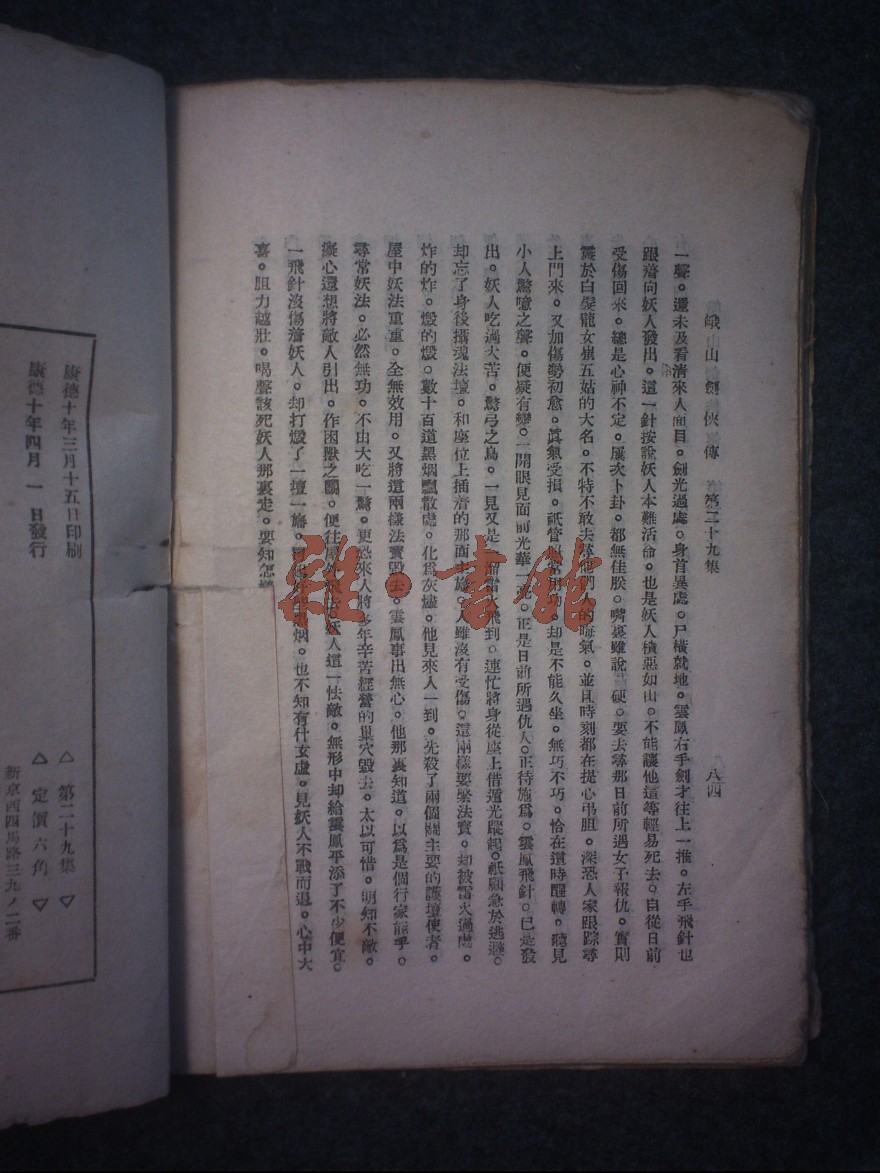 峨山劍俠傳 第二十九集 八四
一聲。還未及看清來人面目。劍光過處。身首異處。尸橫就地。雲鳳右手劍才往上一推。左手飛針也
跟着向妖人發出。這一針按說妖人本難活命。也是妖人積惡如山。不能讓他這等輕易死去。自從日前
受傷回來。總是心神不定。屢次卜卦。都無佳朕。嘴裏雖說 硬。要去尋那日前所遇女子報仇。實則
震於白髮龍女崔五姑的大名。不特不敢去尋他們人的晦氣。並且時刻都在提心弔胆。深恐人家跟踪尋
上門來。又加傷勢初愈。眞氣受損。祇管 功。却是不能久坐。無巧不巧。恰在這時醒轉。聽見
小人驚噫之聲。便疑有變。一開眼見面前光華一 正是日前所遇仇人。正待施爲。雲鳳飛針。已是發
出。妖人吃過大苦。驚弓之鳥。一見又是 雷火飛到。連忙將身從座上借遁光蹤起。祇顧急於逃避。
却忘了身後攝魂法壇。和座位上插着的那面 旛。人雖沒有受傷。這兩樣要緊法寶。却被雷火過處。
炸的炸。燬的燬。數十百道黑烟飄散處。化爲灰燼。他見來人一到。先殺了兩個 主要的護壇使者。
屋中妖法重重。全無效用。又將這兩樣法寶毀去。雲鳳事出無心。他那裏知道。以爲是個行家能手。
尋常妖法。必然無功。不由大吃一驚。更恐來人將多年辛苦經營的巢穴毀去。太以可惜。明知不敵。
癡心還想將敵人引出。作困獸之鬭。便往屋外 妖人這一怯敵。無形中却給雲鳳平添了不少便宜。
一飛針沒傷着妖人。却打燬了一壇一旛。 烟。也不知有什玄虛。見妖人不戰而退。心中大
喜。胆力越壯。喝聲該死妖人那裏走。要知怎
雜·書館
康德十年三月十五日印刷
康德十年四月 一 日發行
△ 第二十九集 ▽
△ 定價六角 ▽
新京西四馬路三九ノ二番